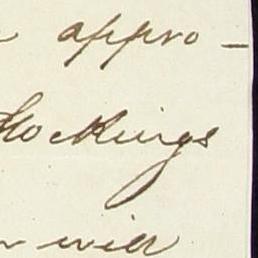 appro-
Stockings
will